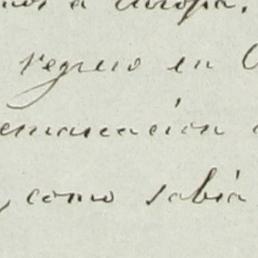 a Europa.
regreso en
emarcación
, como sabía